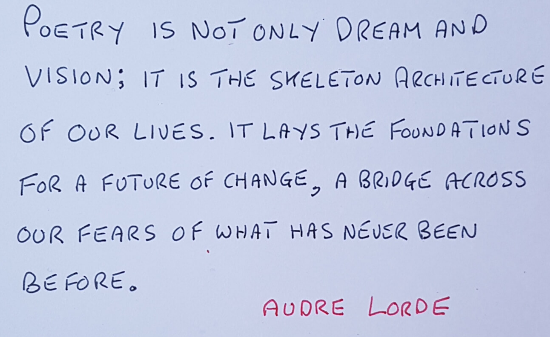 POETRY IS NOT ONLY DREAM AND
VISION; IT IS THE SKELETON ARCHITECTURE
OF OUR LIVES. IT LAYS THE FOUNDATIONS
FOR A FUTURE OF CHANGE, A BRIDGE ACROSS
OUR FEARS OF WHAT HAS NEVER BEEN
BEFORE.
AUDRE LORDE